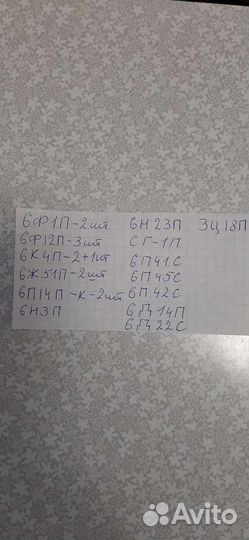 6Ф1П-2шт
6Ф12П-3шт
6К4П-2+1шт
6Ж51П-2шт
6П14П-К-2шт
6Н3П
6Н23П
СГ-1П
6П41С
6П45С
6П42С
6Д14П
6Д22С
3Ц18П
Avito